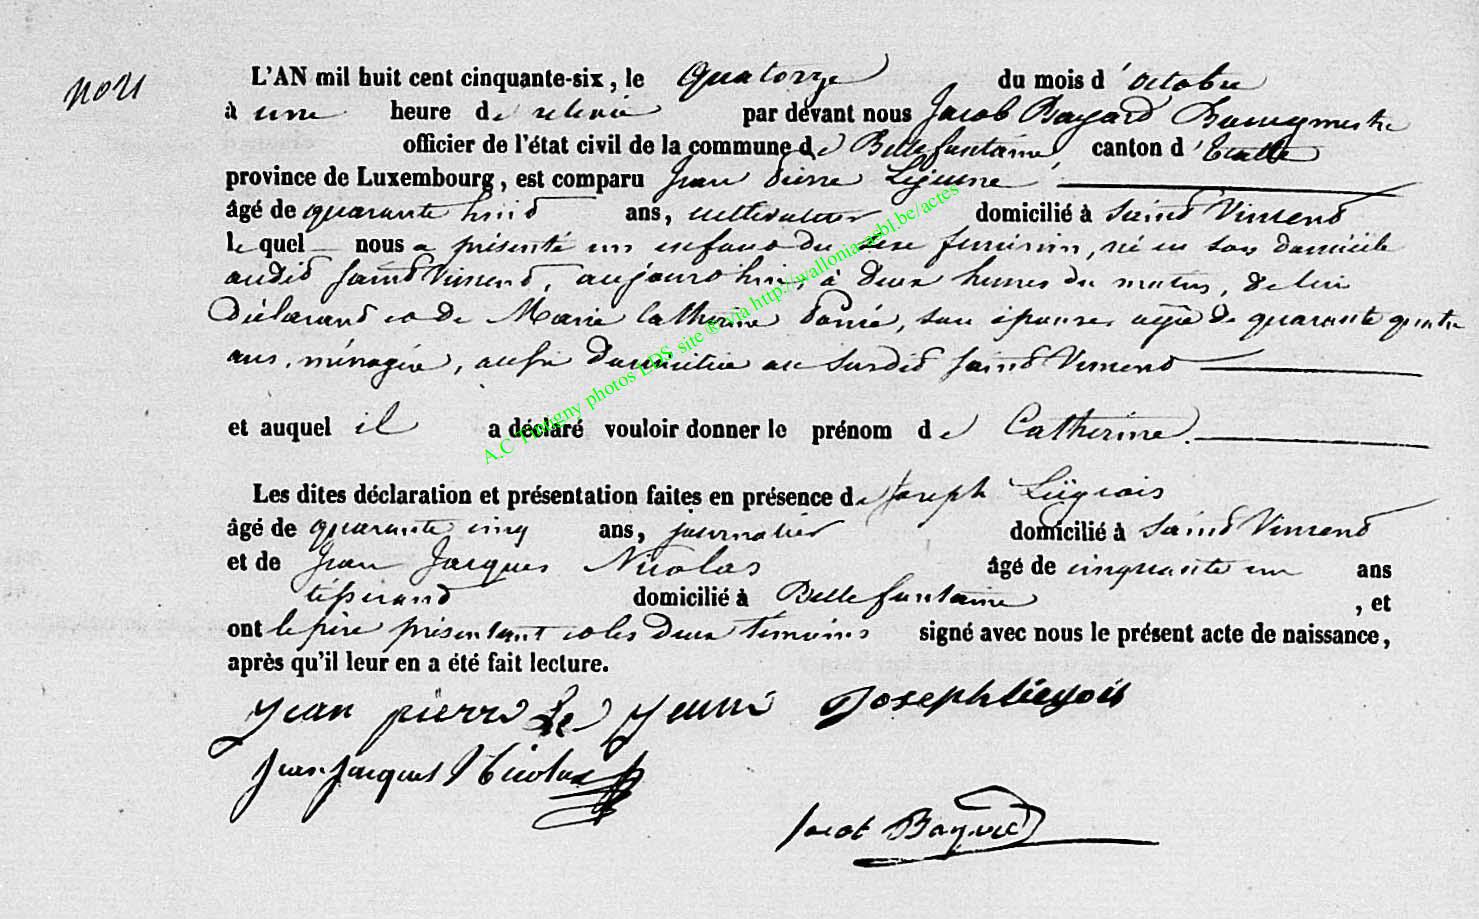 N° 21
L'AN mil huit cent cinquante-six, le Quatorze du mois d'octobre
à une heure de relevée par devant nous Jacob Bayard Bourgmestre
officier de l'état civil de la commune de Bellefontaine, canton d'Etalle
province de Luxembourg, est comparu Jean Pierre Lejeune
âgé de quarante huit ans, cultivateur domicilié à Saint Vincent
lequel nous a présenté un enfant du sexe féminin, né en son domicile
audit Saint Vincent, aujourd'hui, à deux heures du matin, de lui
Déclarant et de Marie Catherine son épouse, agée de quarante quatre
ans, ménagère, aussi domiciliée au susdit Saint Vincent
et auquel il a déclaré vouloir donner le prénom de Catherine.
Les dites déclaration et présentation faites en présence de Joseph Liégeois
âgé de quarante cinq ans, journalier domicilié à Saint Vincent
et de Jean Jacques Nicolas âgé de cinquante un ans
tisserand domicilié à Bellefontaine, et
ont le père présentant et les deux témoins signé avec nous le présent acte de naissance,
après qu'il leur en a été fait lecture.
Jean pierre Le Jeune Joseph liegois
Jean Jacques Nicolas
Jacob Bayard
A.C Tintigny photos LDS site @ via http://wallonia-asbl.be/actes